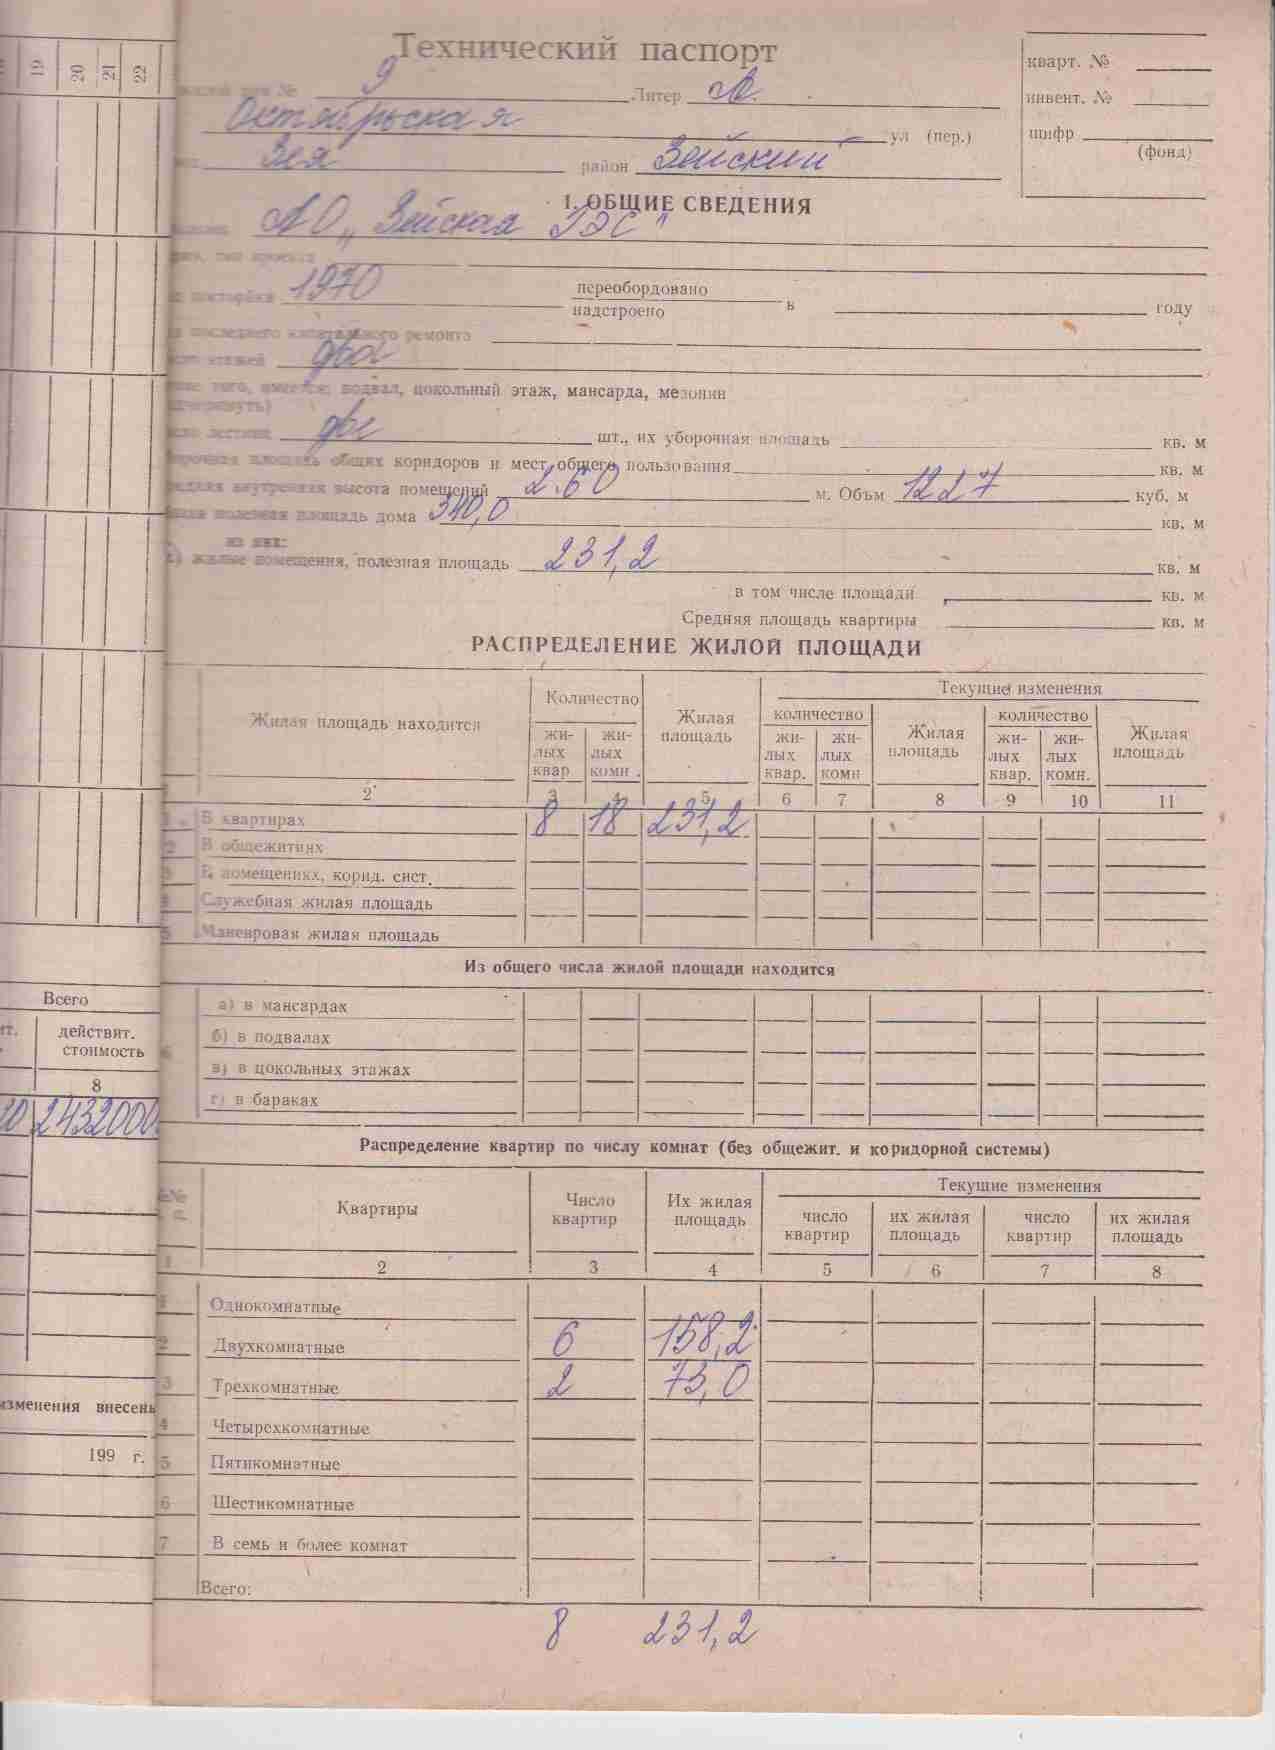 19 20 21 22
Технический паспорт
кварт. №
дом № 9 Литер А.
инвент. №
Октябрьская ул (пер.)
шифр
(фонд)
Зея район Зейский
1. ОБЩИЕ СВЕДЕНИЯ
АО „Зейская ГЭС"
тип проекта
постройки 1970 переобордовано
надстроено в году
последнего капитального ремонта
этажей два
того, имеется: подвал, цокольный этаж, мансарда, мезонин
(подчеркнуть)
лестниц две шт., их уборочная площадь кв. м
площадь общих коридоров и мест общего пользования кв. м
внутренняя высота помещений 2.60 м. Объм 1227 куб. м
полезная площадь дома 340,0 кв. м
из них:
жилые помещения, полезная площадь 231,2 кв. м
в том числе площади кв. м
Средняя площадь квартиры кв. м
РАСПРЕДЕЛЕНИЕ ЖИЛОЙ ПЛОЩАДИ
Жилая площадь находится Количество Жилая площадь Текущие изменения
количество Жилая площадь количество Жилая площадь
жи- жи- жи- жи- жи- жи-
лых лых лых лых лых лых
квар комн. квар. комн квар. комн.
2 3 4 5 6 7 8 9 10 11
1 В квартирах 8 18 231,2
2 В общежитиях
3 В помещениях, корид. сист.
4 Служебная жилая площадь
5 Маневровая жилая площадь
Из общего числа жилой площади находится
а) в мансардах
б) в подвалах
6
в) в цокольных этажах
г) в бараках
Всего
действит.
стоимость
8
2432000
Распределение квартир по числу комнат (без общежит. и коридорной системы)
№№ п. Квартиры Число квартир Их жилая площадь Текущие изменения
число квартир их жилая площадь число квартир их жилая площадь
1 2 3 4 5 6 7 8
1 Однокомнатные
2 Двухкомнатные 6 158,2
3 Трехкомнатные 2 73,0
4 Четырехкомнатные
5 Пятикомнатные
6 Шестикомнатные
7 В семь и более комнат
Всего:
8 231,2
изменения внесены
199 г.